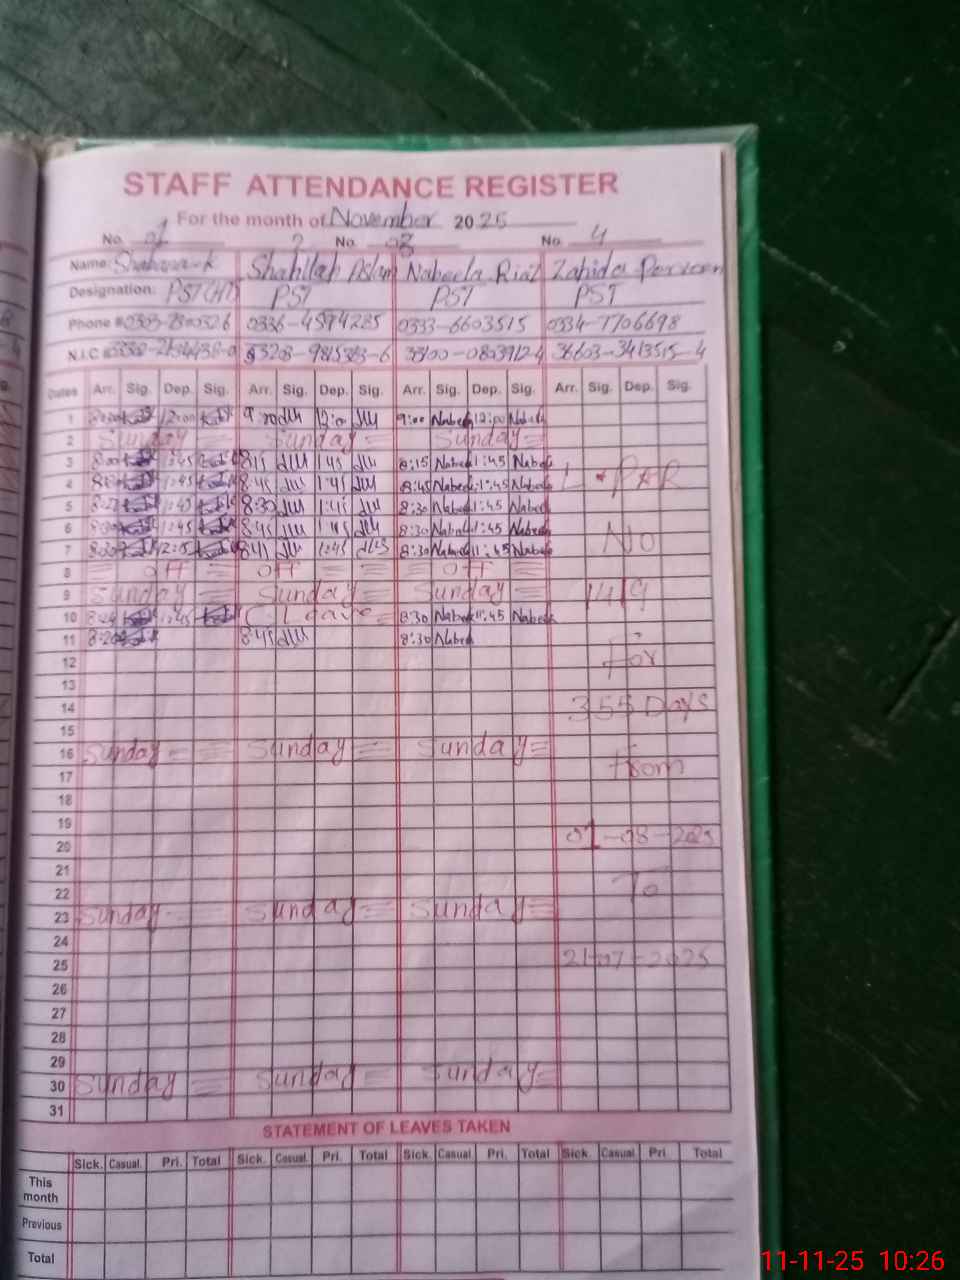 STAFF ATTENDANCE REGISTER
For the month of November 2025
No. 01 2 No. 03 No. 4
Name: Shabana-k Shahllah Aslam Nabeela Riaz Zahida Parveen
Designation: PST(HT) PST PST PST
Phone # 0336-4594285 0333-6603515 0334-7706698
N.I.C # 36603-3413515-4
Dates Arr. Sig. Dep. Sig. Arr. Sig. Dep. Sig. Arr. Sig. Dep. Sig. Arr. Sig. Dep. Sig.
1 12:00 9:00 12:00 9:00 Nabeela 12:00 Nabeela
2 Sunday = Sunday = Sunday =
3 8:00 1:45 8:15 1:45 8:15 Nabeela 1:45 Nabeela
4 1:45 8:45 1:45 8:45 Nabeela 1:45 Nabeela L.PAR
5 1:45 8:30 1:45 8:30 Nabeela 1:45 Nabeela
6 8:30 1:45 8:45 1:45 8:30 Nabeela 1:45 Nabeela No
7 8:30 12:15 8:45 1:45 8:30 Nabeela 1:45 Nabeela
8 = OFF = OFF = = = OFF =
9 Sunday = Sunday = Sunday = 1419
10 1:45 C. Leave = 8:30 Nabeela 1:45 Nabeela
11 8:20 8:45 8:30 Nabeela
12 For
13
14 355 Days
15
16 Sunday = = Sunday = Sunday =
17 From
18
19
20 01-08-2025
21
22 To
23 Sunday = Sunday = Sunday =
24
25 21-07-2025
26
27
28
29
30 Sunday = Sunday = Sunday =
31
STATEMENT OF LEAVES TAKEN
Sick. Casual. Pri. Total Sick. Casual. Pri. Total Sick. Casual. Pri. Total Sick. Casual. Pri. Total
This month
Previous
Total
11-11-25 10:26